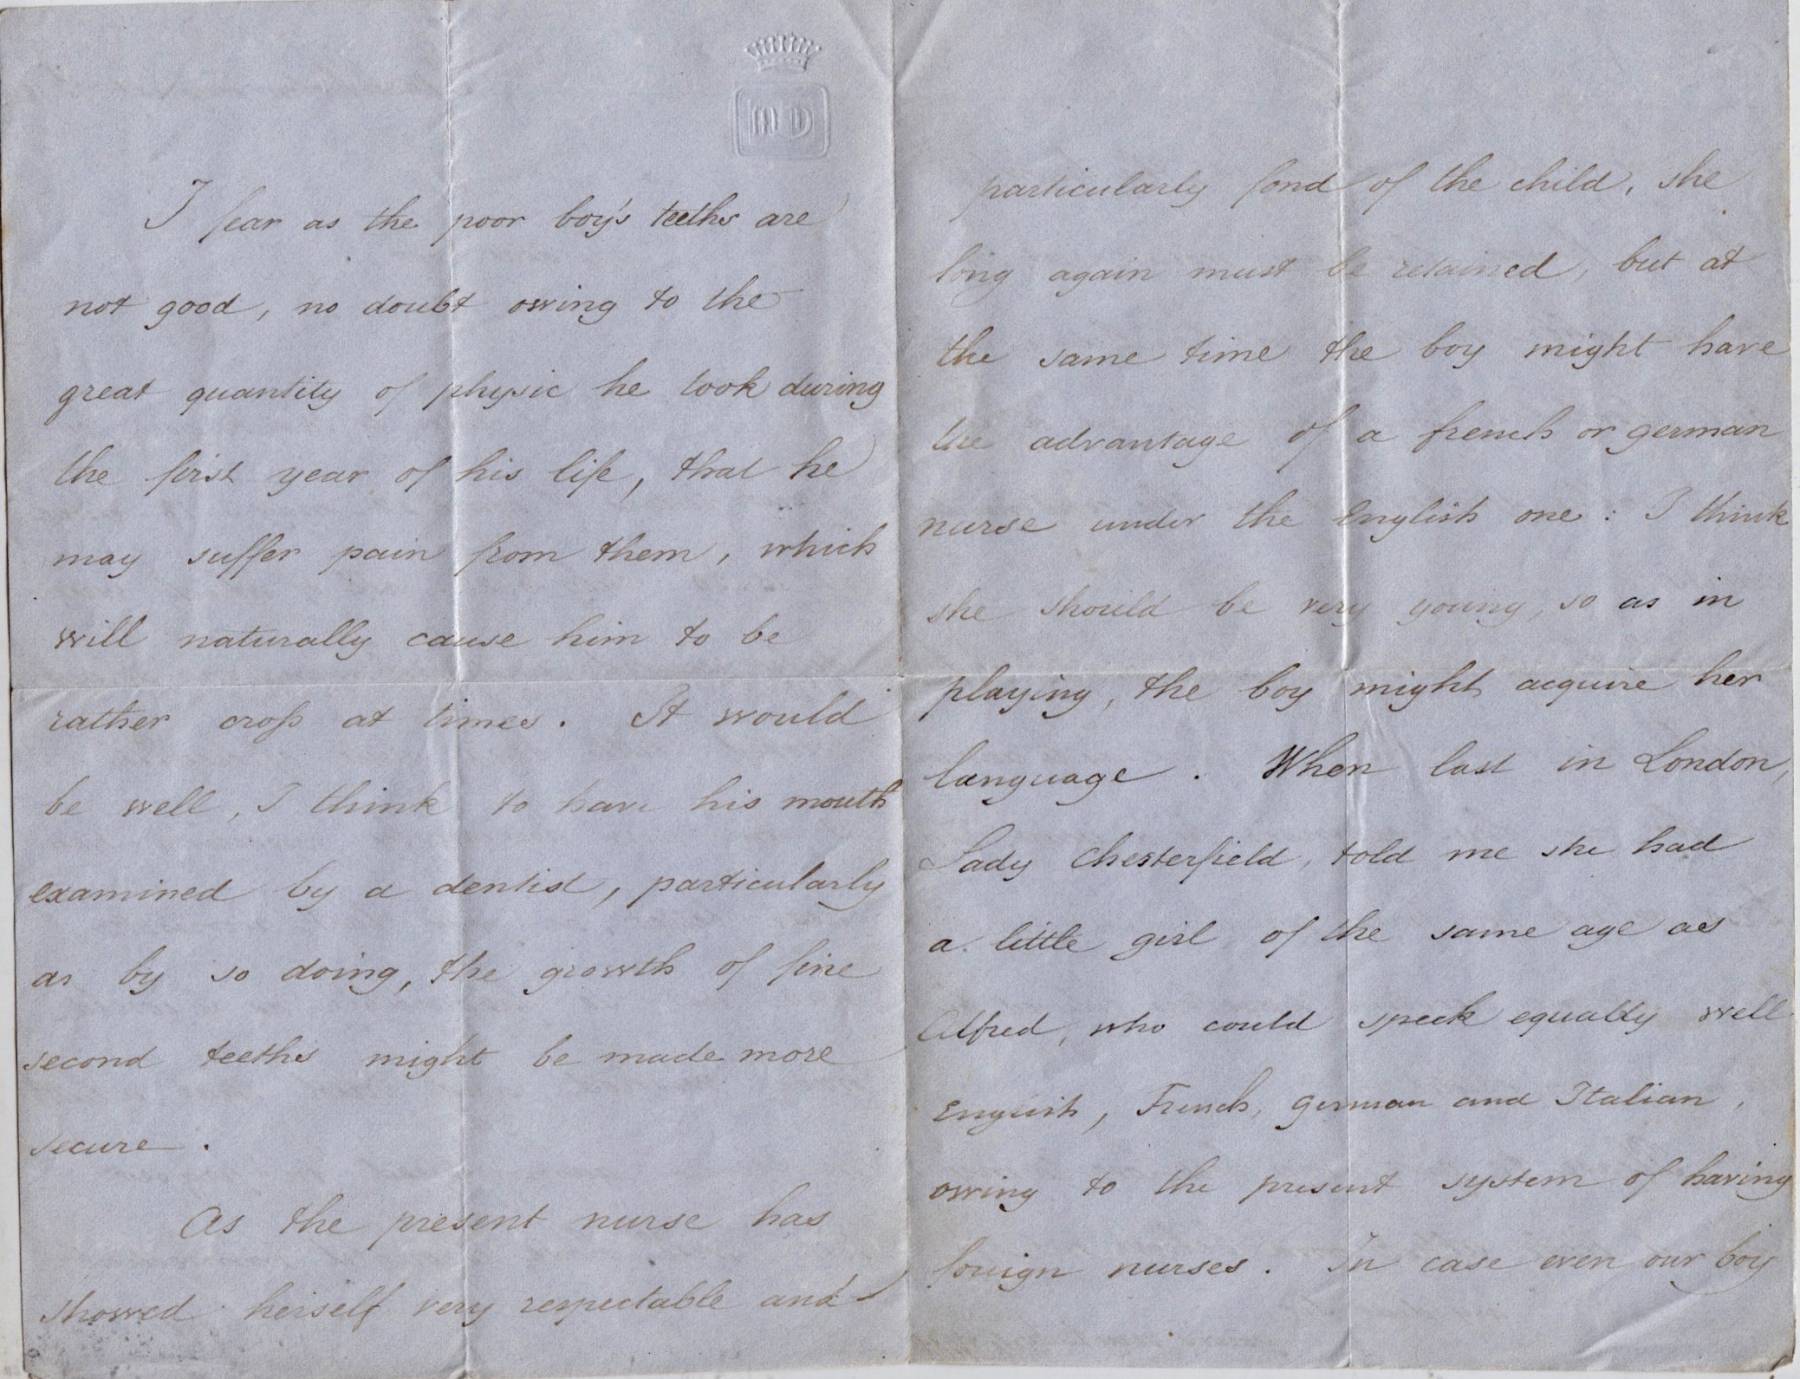 MD
I fear as the poor boy's teeths are
not good, no doubt owing to the
great quantity of physic he took during
the first year of his life, that he
may suffer pain from them, which
will naturally cause him to be
rather cross at times. It would
be well, I think to have his mouth
examined by a dentist, particularly
as by so doing, the growth of fine
second teeths might be made more
secure.
As the present nurse has
showed herself very respectable and
particularly fond of the child, she
long again must be retained, but at
the same time the boy might have
the advantage of a french or german
nurse under the English one: I think
she should be very young, so as in
playing, the boy might acquire her
language. When last in London,
Lady Chesterfield, told me she had
a little girl of the same age as
Alfred, who could speek equally well
English, French, German and Italian,
owing to the present system of having
foreign nurses. In case even our boy